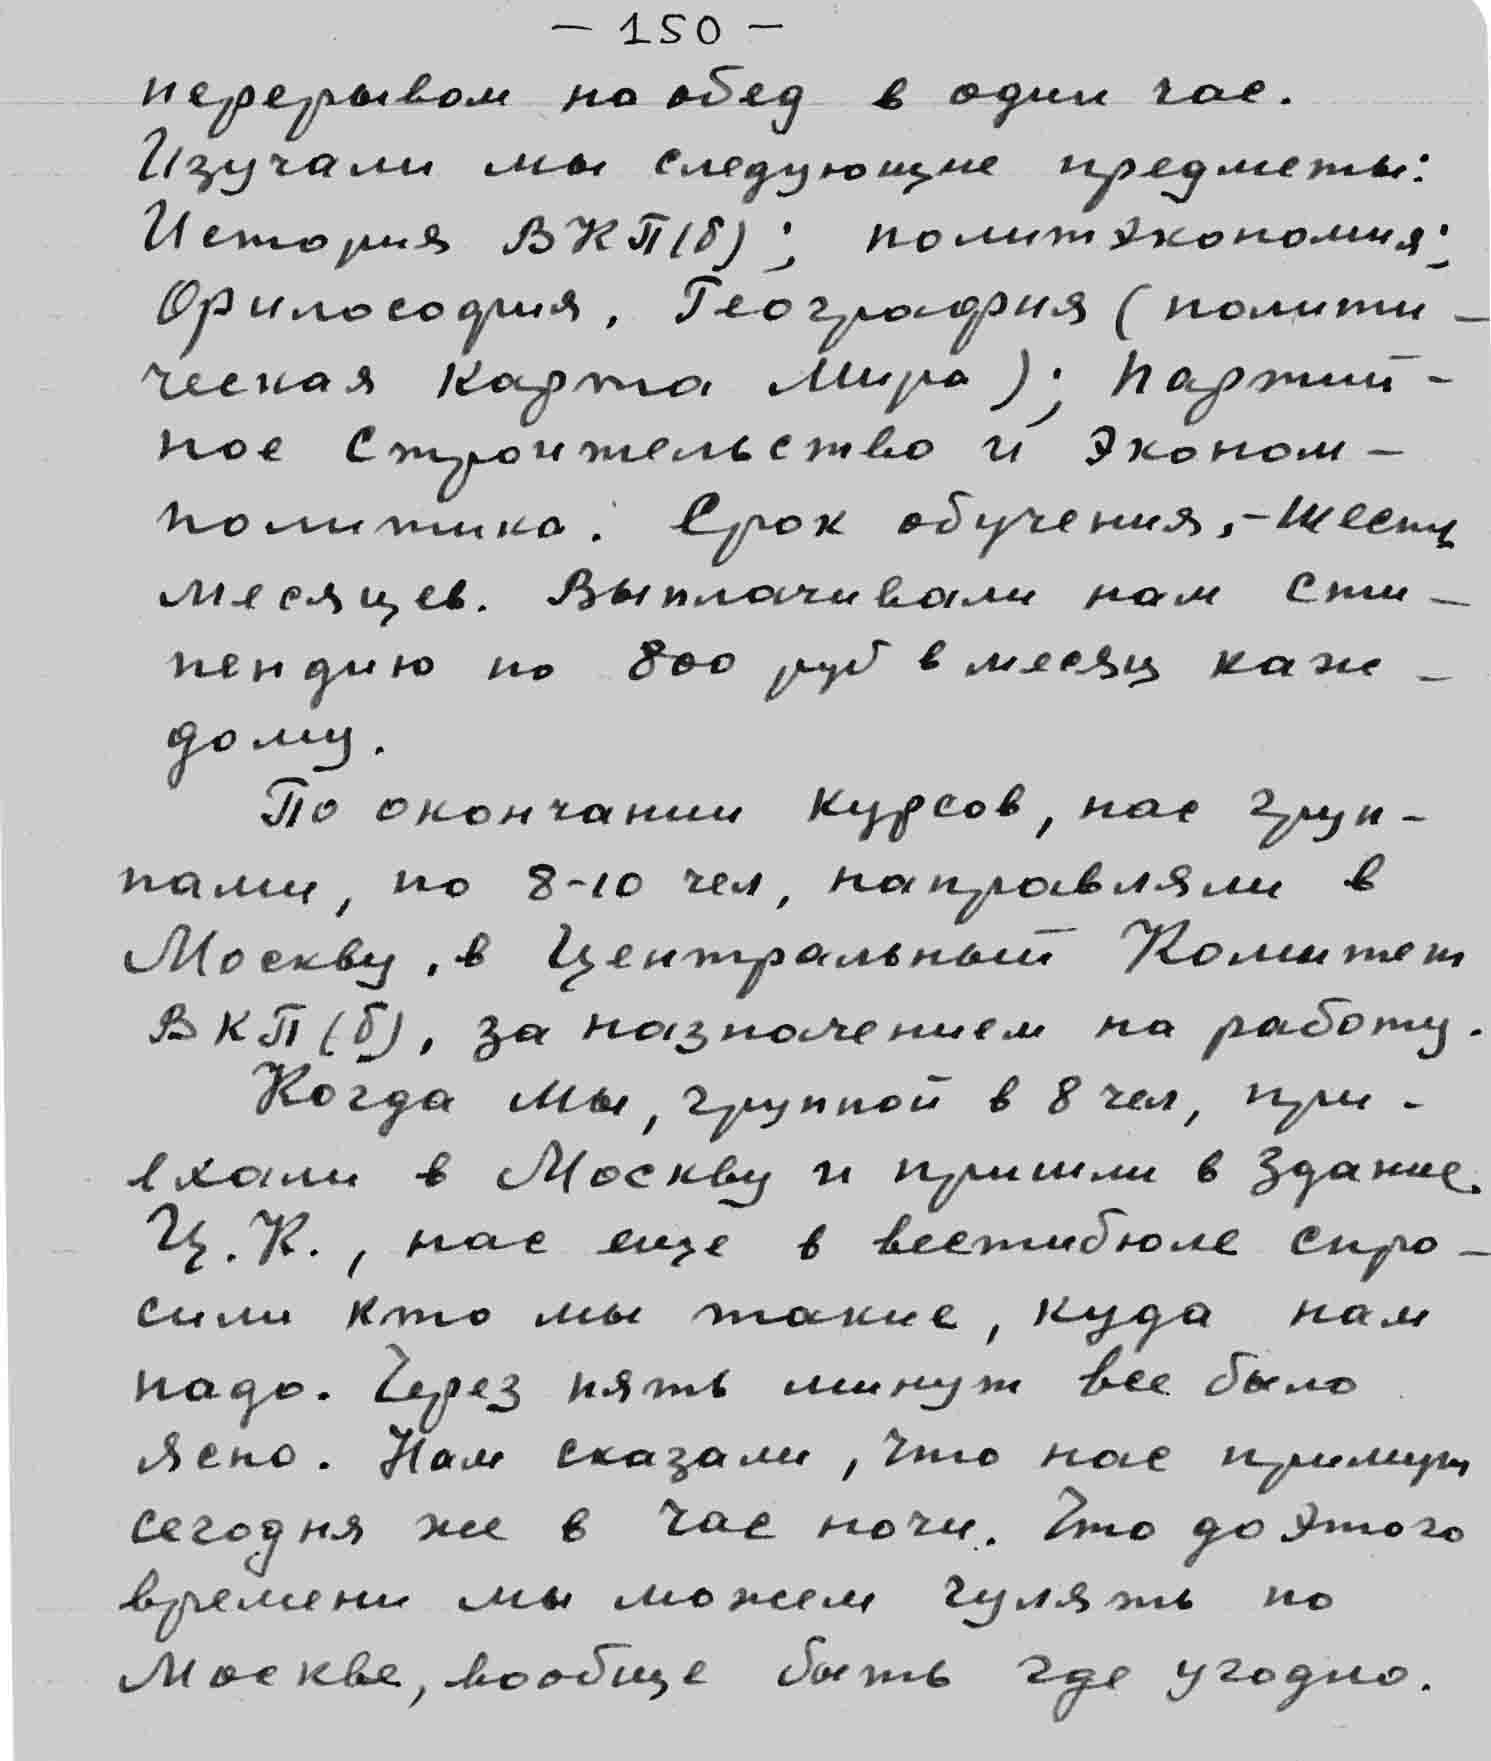 - 150 -
перерывом на обед в один час.
Изучали мы следующие предметы:
История ВКП(б); политэкономия;
Философия, География (полити-
ческая карта Мира); Партий-
ное строительство и Эконом-
политика. Срок обучения,- шесть
месяцев. Выплачивали нам сти-
пендию по 800 руб в месяц каж-
дому.
По окончании курсов, нас груп-
пами, по 8-10 чел, направляли в
Москву, в Центральный Комитет
ВКП(б), за назначением на работу.
Когда мы, группой в 8 чел, при-
ехали в Москву и пришли в здание
Ц.К., нас еще в вестибюле спро-
сили кто мы такие, куда нам
надо. Через пять минут все было
ясно. Нам сказали, что нас примут
сегодня же в час ночи. Что до этого
времени мы можем гулять по
Москве, вообще быть где угодно.